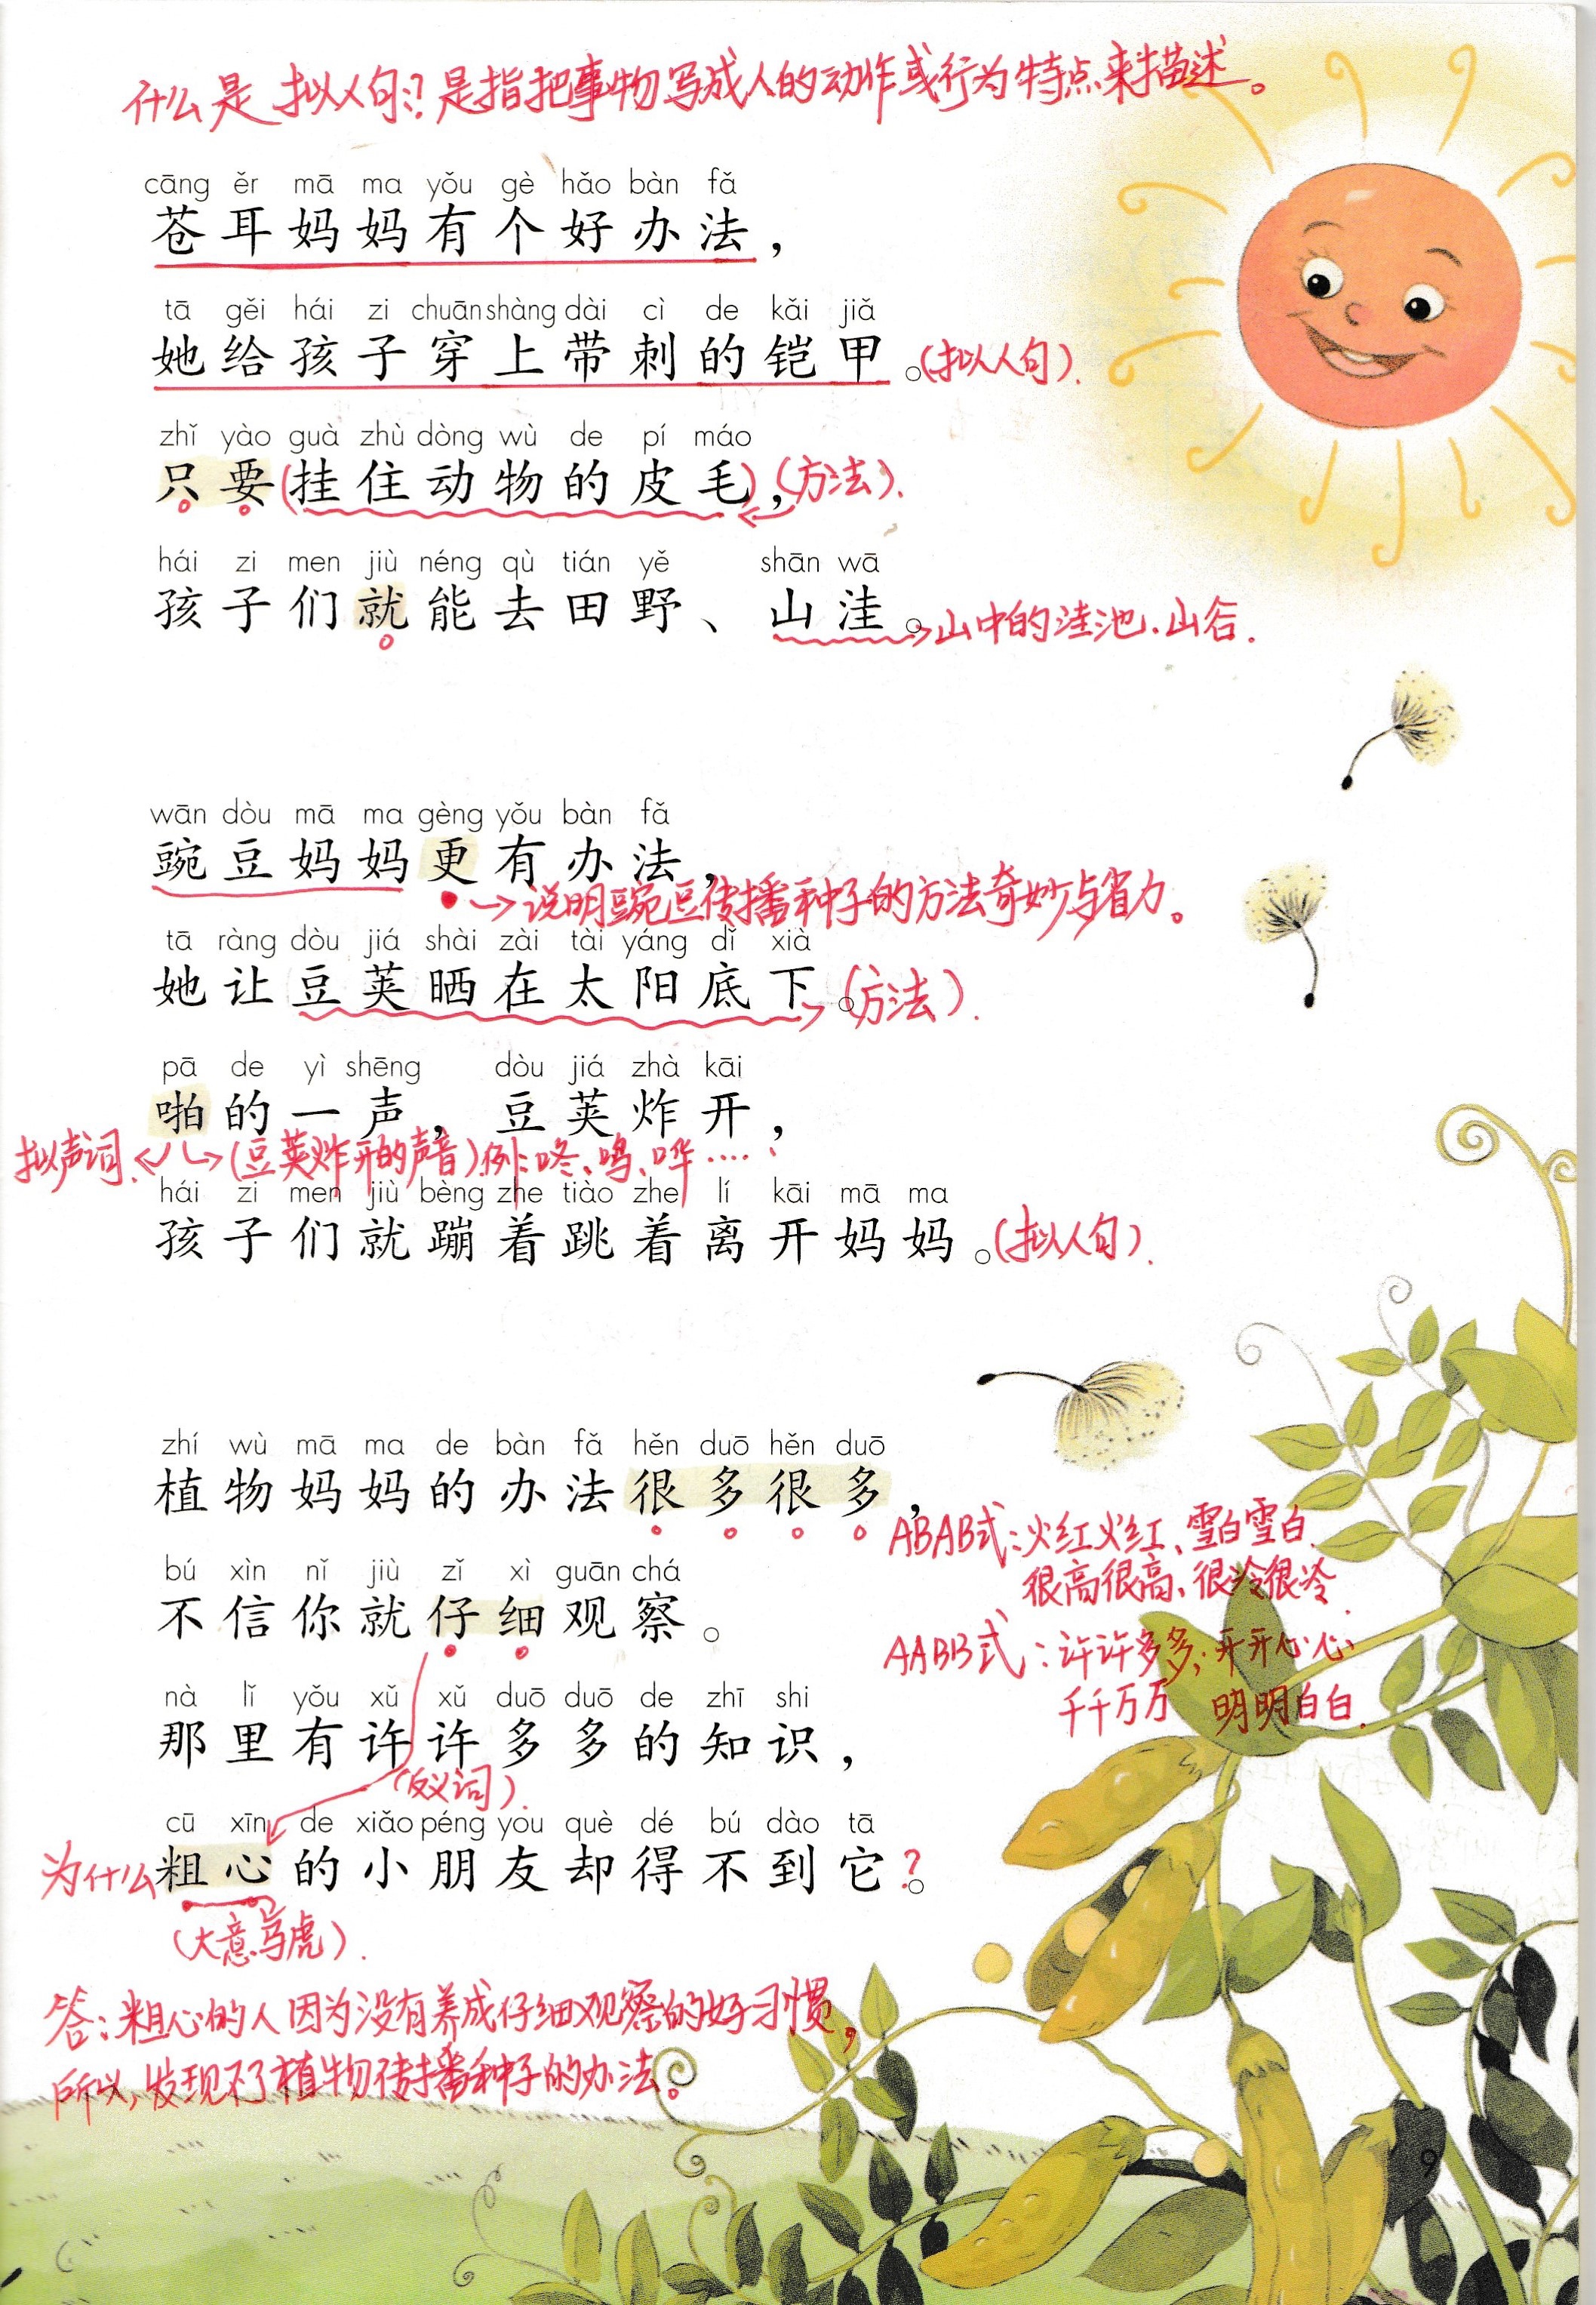 什么是拟人句?是指把事物写成人的动作或行为特点来描述。
cāng ěr mā ma yǒu gè hǎo bàn fǎ
苍耳妈妈有个好办法，
tā gěi hái zi chuān shàng dài cì de kǎi jiǎ
她给孩子穿上带刺的铠甲。(拟人句).
zhǐ yào guà zhù dòng wù de pí máo
只要(挂住动物的皮毛)，(方法).
hái zi men jiù néng qù tián yě shān wā
孩子们就能去田野、山洼。→山中的洼池、山谷.
wān dòu mā ma gèng yǒu bàn fǎ
豌豆妈妈更有办法，
→说明豌豆传播种子的方法奇妙与省力。
tā ràng dòu jiá shài zài tài yáng dǐ xià
她让豆荚晒在太阳底下。(方法).
pā de yì shēng dòu jiá zhà kāi
啪的一声，豆荚炸开，
拟声词.←→(豆荚炸开的声音)例:咚、鸣、哗……
hái zi men jiù bèng zhe tiào zhe lí kāi mā ma
孩子们就蹦着跳着离开妈妈。(拟人句).
zhí wù mā ma de bàn fǎ hěn duō hěn duō
植物妈妈的办法很多很多，
ABAB式:火红火红、雪白雪白、
很高很高、很冷很冷.
bú xìn nǐ jiù zǐ xì guān chá
不信你就仔细观察。
AABB式:许许多多、开开心心、
千千万万 明明白白.
nà lǐ yǒu xǔ xǔ duō duō de zhī shi
那里有许许多多的知识，
(反义词).
cū xīn de xiǎo péng you què dé bú dào tā
为什么粗心的小朋友却得不到它?。
(大意、马虎).
答:粗心的人因为没有养成仔细观察的好习惯，
所以,发现不了植物传播种子的办法。
9